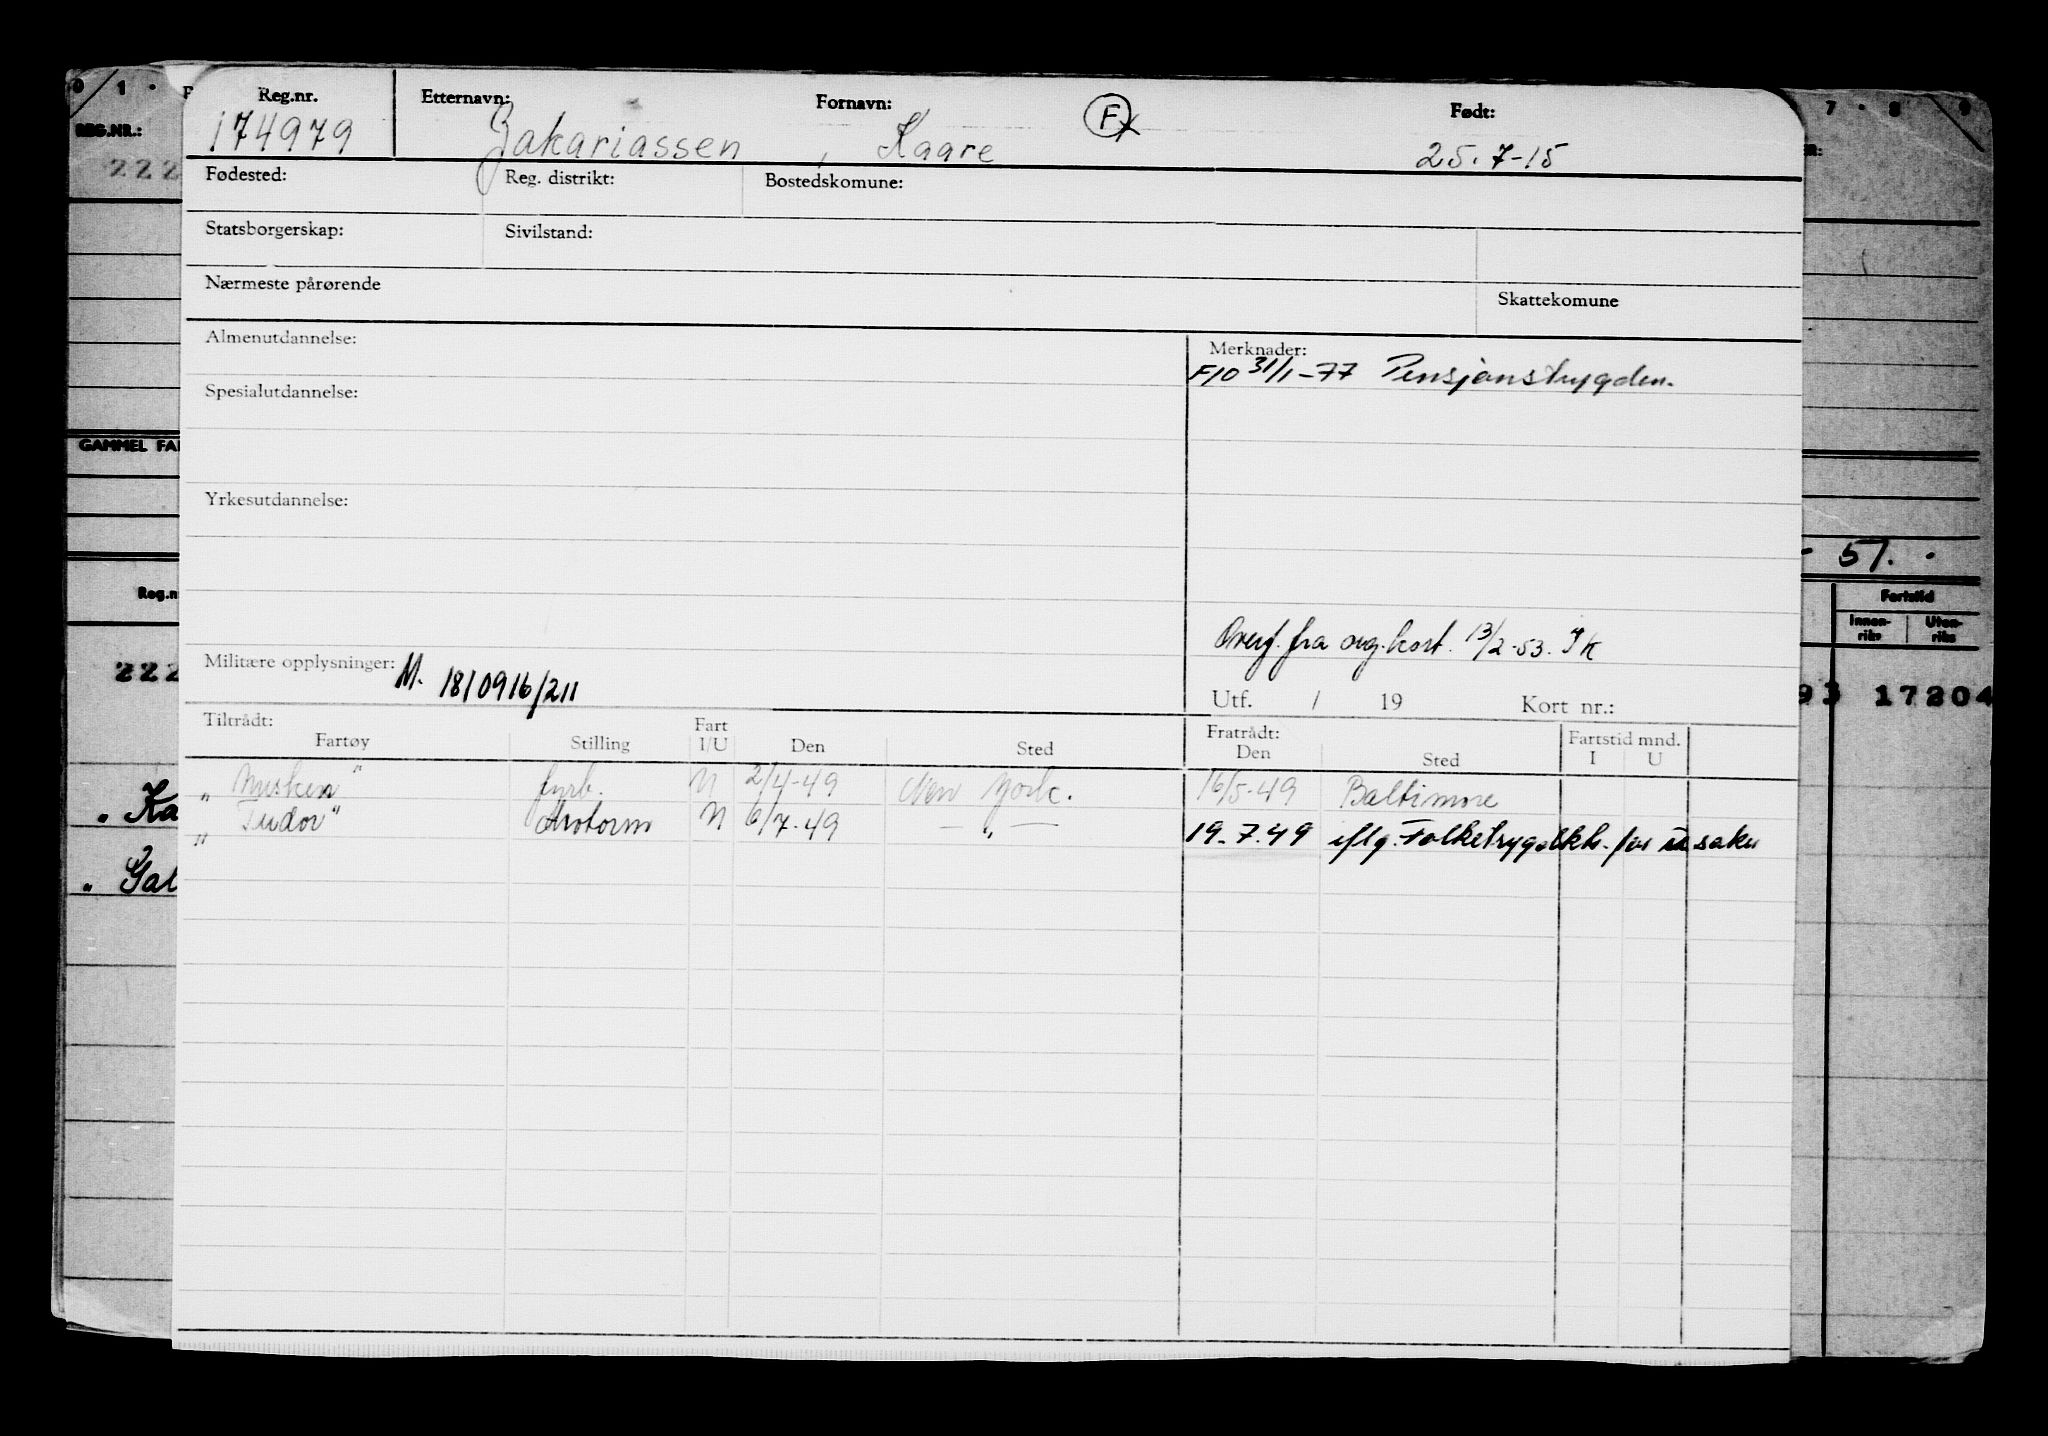 Reg.nr. Etternavn: Fornavn: F Født:
174979 Zakariassen, Kaare 25.7-15
Fødested: Reg. distrikt: Bostedskomune:
Statsborgerskap: Sivilstand:
Nærmeste pårørende Skattekomune
Almenutdannelse: Merknader:
F/O 31/1-77 Pensjonstrygden.
Spesialutdannelse:
Yrkesutdannelse:
Overf. fra org.kort. 13/2-53.
Militære opplysninger: M. 1810916/211
Utf. / 19 Kort nr.:
Tiltrådt: Fratrådt:
Fartøy Stilling Fart I/U Den Sted Den Sted Fartstid mnd. I U
"Musken" fyrb. U 2/4-49 New York. 16/5-49 Baltimore
"Tudor" Motorm U 6/7-49 — " — 19.7.49 iflg. Folketrygdktr. for u saker
0 1 .
REG.NR.:
222
GAMMEL FA
Reg.n
222
" Ka
" Gal
7 . 8 9
- 51.
Fartstid
Innen-riks Uten-riks
93 17204